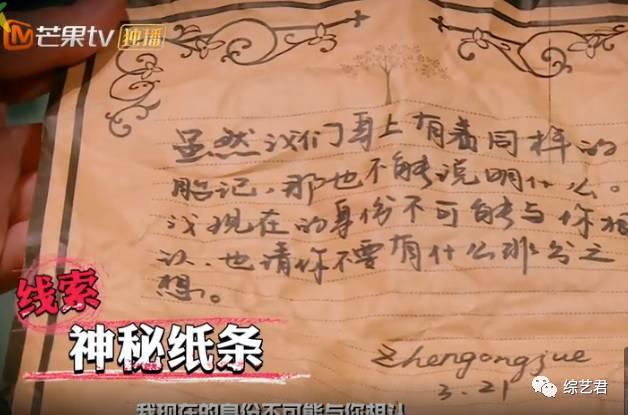 芒果tv 独播
虽然我们身上有着同样的
胎记，那也不能说明什么。
我现在的身份不可能与你相
认，也请你不要有什么非分之
想。
Zhengongjue
3.21
线索
神秘纸条
我现在的身份不可能与你相认
综艺君